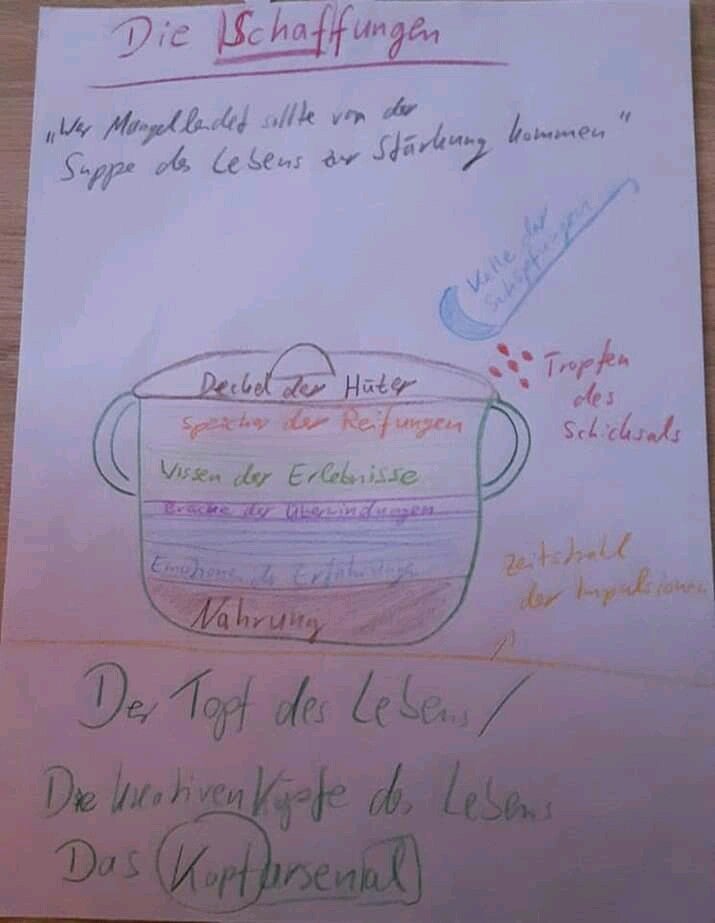 Die Schaffungen
„Wer Mangel leidet sollte von der
Suppe des Lebens zur Stärkung kommen"
Kelle der
Schöpfungen
Tropfen
des
Schicksals
Deckel der Hüter
Speicher der Reifungen
Wissen der Erlebnisse
Brücke der Überwindungen
Emotionen der Erfahrungen
Nahrung
Zeitstrahl
der Impulsionen
Der Topf des Lebens/
Die kreativen Köpfe des Lebens
Das Kopfarsenal